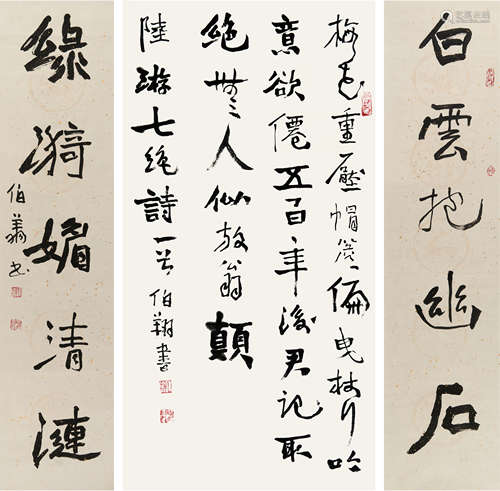 白雲抱幽石
梅花重壓帽簷偏曳杖行吟
意欲僊五百年後君記取
絕無人似放翁顛
陸游七絕詩一首 伯翔書
綠漪媚清漣
伯翔書